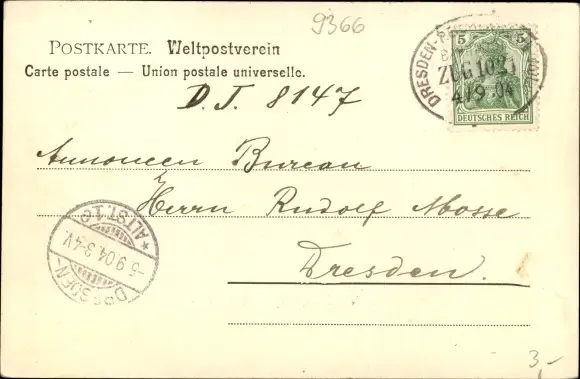 9366
POSTKARTE. Weltpostverein
Carte postale — Union postale universelle.
D. T. 8147
5 5
DEUTSCHES REICH
DRESDEN-
ZUG 102
4/9 04
Annoncen Bureau
Herrn Rudolf Mosse
Dresden.
DRESDEN-
ALTST. 16
5.9.04.3-4.V.
3,-